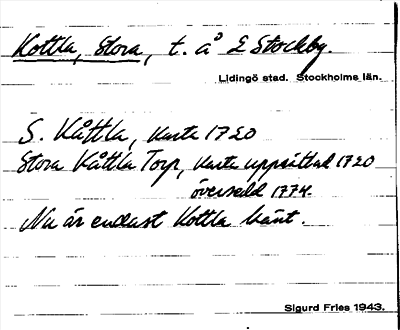 Kottla, Stora, t. å L Stockby.
Lidingö stad. Stockholms län.
S. Kåttla, karta 1720
Stora Kåttla Torp, karta upprättad 1720
översedd 1774.
Nu är endast Kottla känt.
Sigurd Fries 1943.